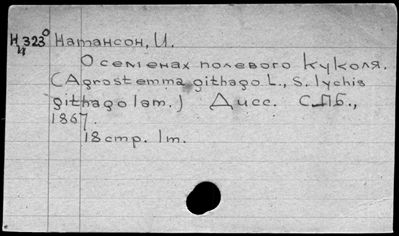 Н 323° Натансон, И.
И
О семенах полевого куколя.
(Agrostemma githago L., S. lychis
githago lam.) Дисс. С.П.Б.,
1867.
18 стр. 1 т.